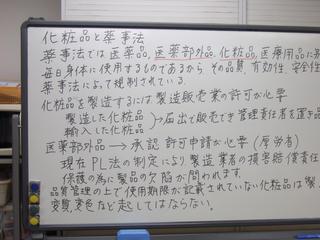 化粧品と薬事法
薬事法では医薬品,医薬部外品,化粧品,医療用品に
毎日身体に使用するものであるから その品質,有効性,安全性
薬事法によって規制されている。
化粧品を製造するには製造販売業の許可が必要
製造した化粧品
輸入した化粧品 → 届出で販売でき 管理責任者を置き
医薬部外品 → 承認 許可申請が必要 (厚労省)
現在 PL法の制定により 製造業者の損害賠償責任
保護の為に製品の欠陥が問われます。
品質管理の上で使用期限が記載されていない化粧品は製
変臭,変色など起してはならない。